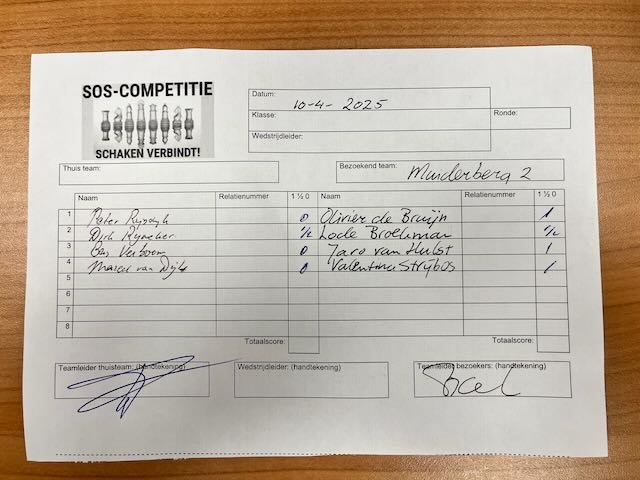 SOS-COMPETITIE
SCHAKEN VERBINDT!
Datum: 10-4-2025
Klasse:
Ronde:
Wedstrijdleider:
Thuis team:
Bezoekend team: Muiderberg 2
Naam Relatienummer 1 ½ 0 Naam Relatienummer 1 ½ 0
1 Peter 0 Olivier de Bruijn 1
2 Dirk ½ Lode Broekman ½
3 Ben Verboom 0 Jaro van Hulst 1
4 Marcel van Dijk 0 Valentina Strijbos 1
5
6
7
8
Totaalscore: Totaalscore:
Teamleider thuisteam: (handtekening) Wedstrijdleider: (handtekening) Teamleider bezoekers: (handtekening)